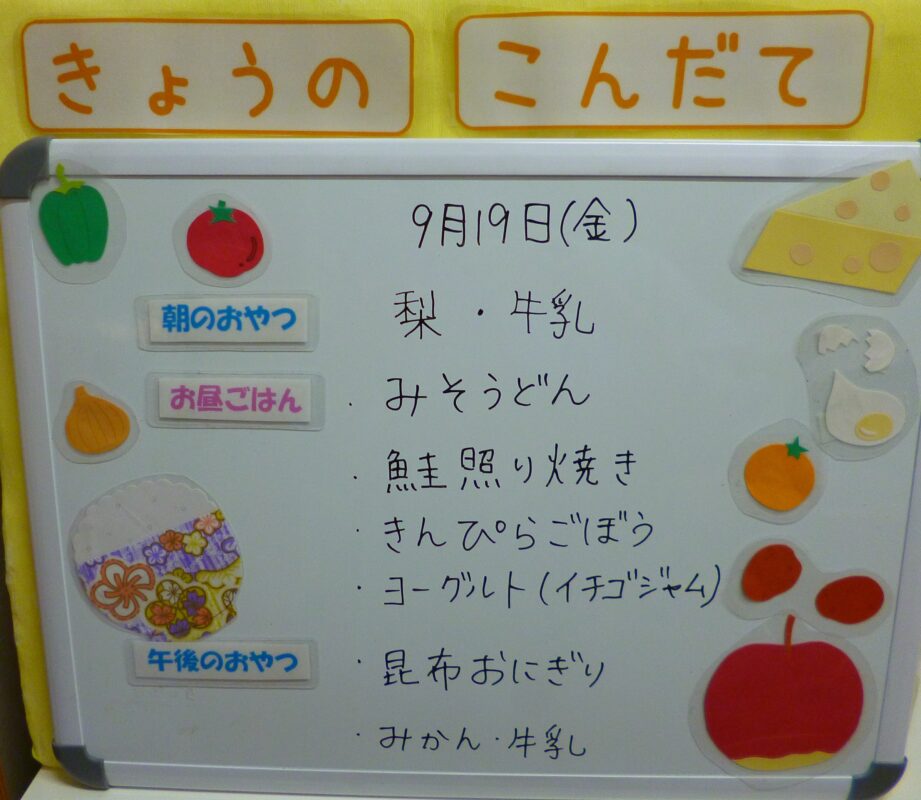 きょうの こんだて
9月19日(金)
朝のおやつ 梨・牛乳
お昼ごはん ・みそうどん
・鮭照り焼き
・きんぴらごぼう
・ヨーグルト(イチゴジャム)
午後のおやつ ・昆布おにぎり
・みかん・牛乳